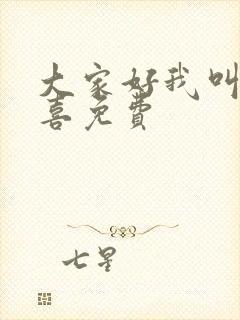 大家好我叫
喜免费
七星